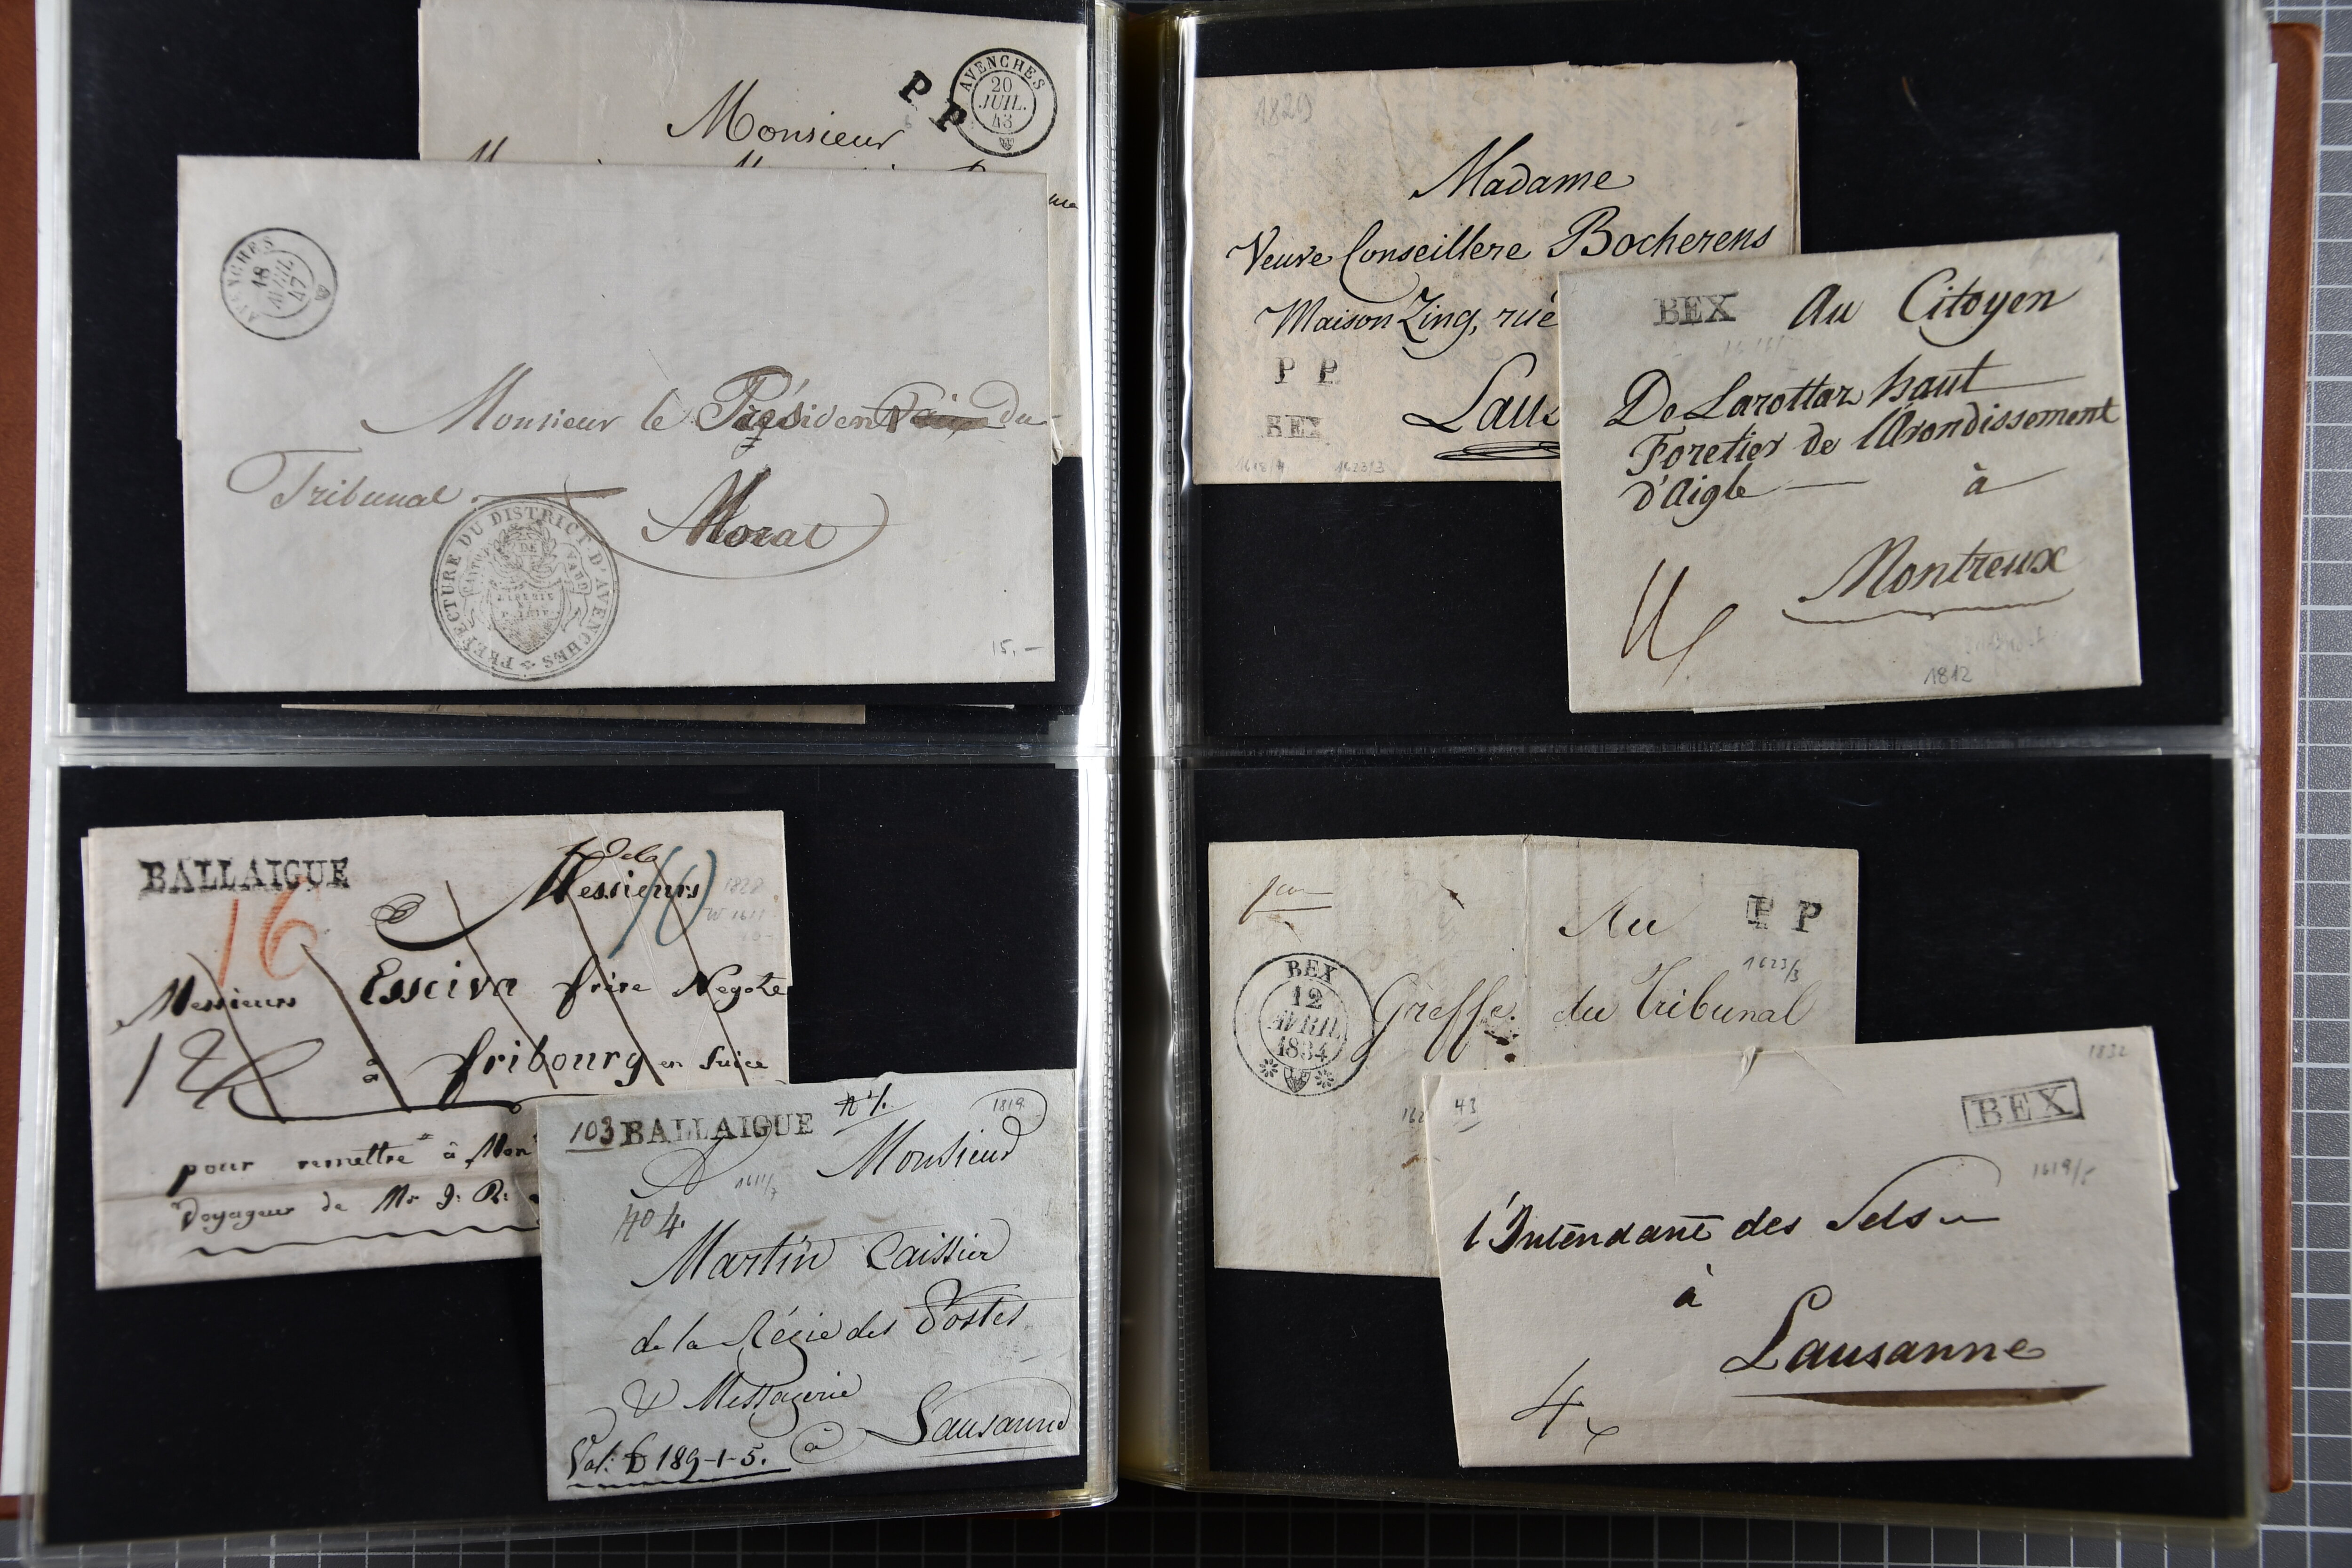 P P
AVENCHES
20
JUIL.
43
Monsieur
AVENCHES
18
AVRIL
47
Monsieur le Président du
Tribunal
Morat
PREFECTURE DU DISTRICT D'AVENCHES
CANTON DE VAUD
LIBERTE ET PATRIE
15.-
1829
Madame
Veuve Conseillere Bocherens
Maison Zing, rue
P P
BEX
Laus
1618/4 1623/3
BEX Au Citoyen
De Larottaz haut
Foretier de l'Arondissement
d'Aigle à
Montreux
4
1812
BALLAIGUE
16
10
Messieurs
Messieurs Esseiva frère Negote
12
à fribourg en Suice
pour remettre à Mon
Voyageur de Mr J: R:
103 BALLAIGUE N° 1.
1819
Monsieur
1611/7
Martin Caissier
de la Régie des Postes
& Messagerie
à Lausanne
Val: £ 189-1-5.
Au
P P
1623/3
BEX
12
AVRIL
1834
Greffe du Tribunal
162
43
1832
BEX
l'Intendant des Sels
à
Lausanne
4